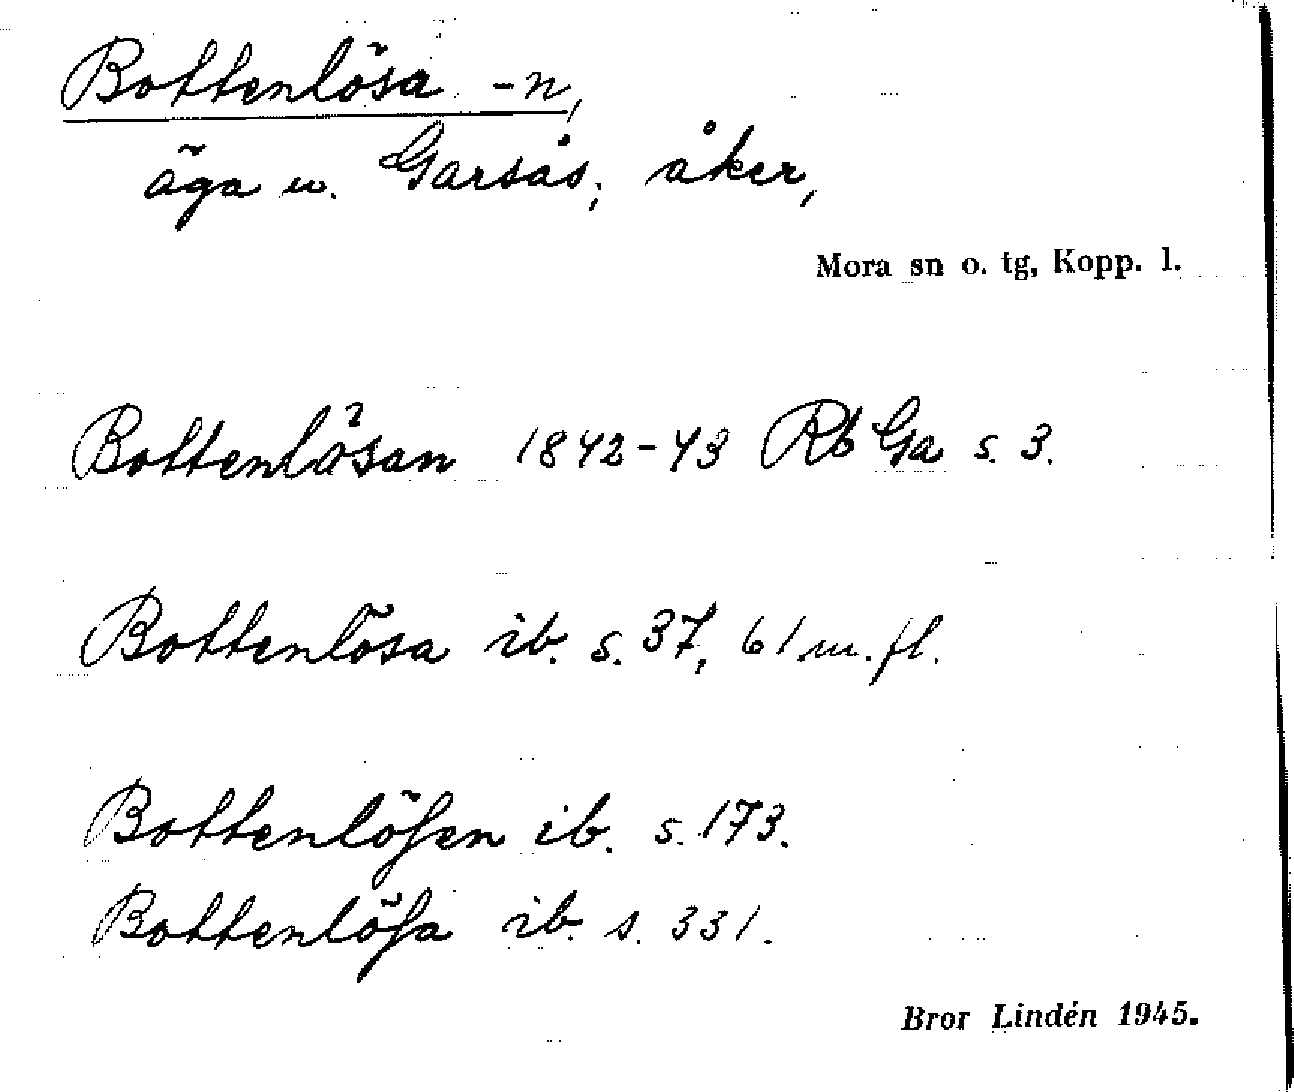 Bottenlösa -n,
äga u. Garsås; åker,
Mora sn o. tg, Kopp. l.
Bottenlösan 1842-43 Rb Ga s. 3.
Bottenlösa ib. s. 37, 61 m. fl.
Bottenlöſen ib. s. 173.
Bottenlöſa ib. s. 331.
Bror Lindén 1945.